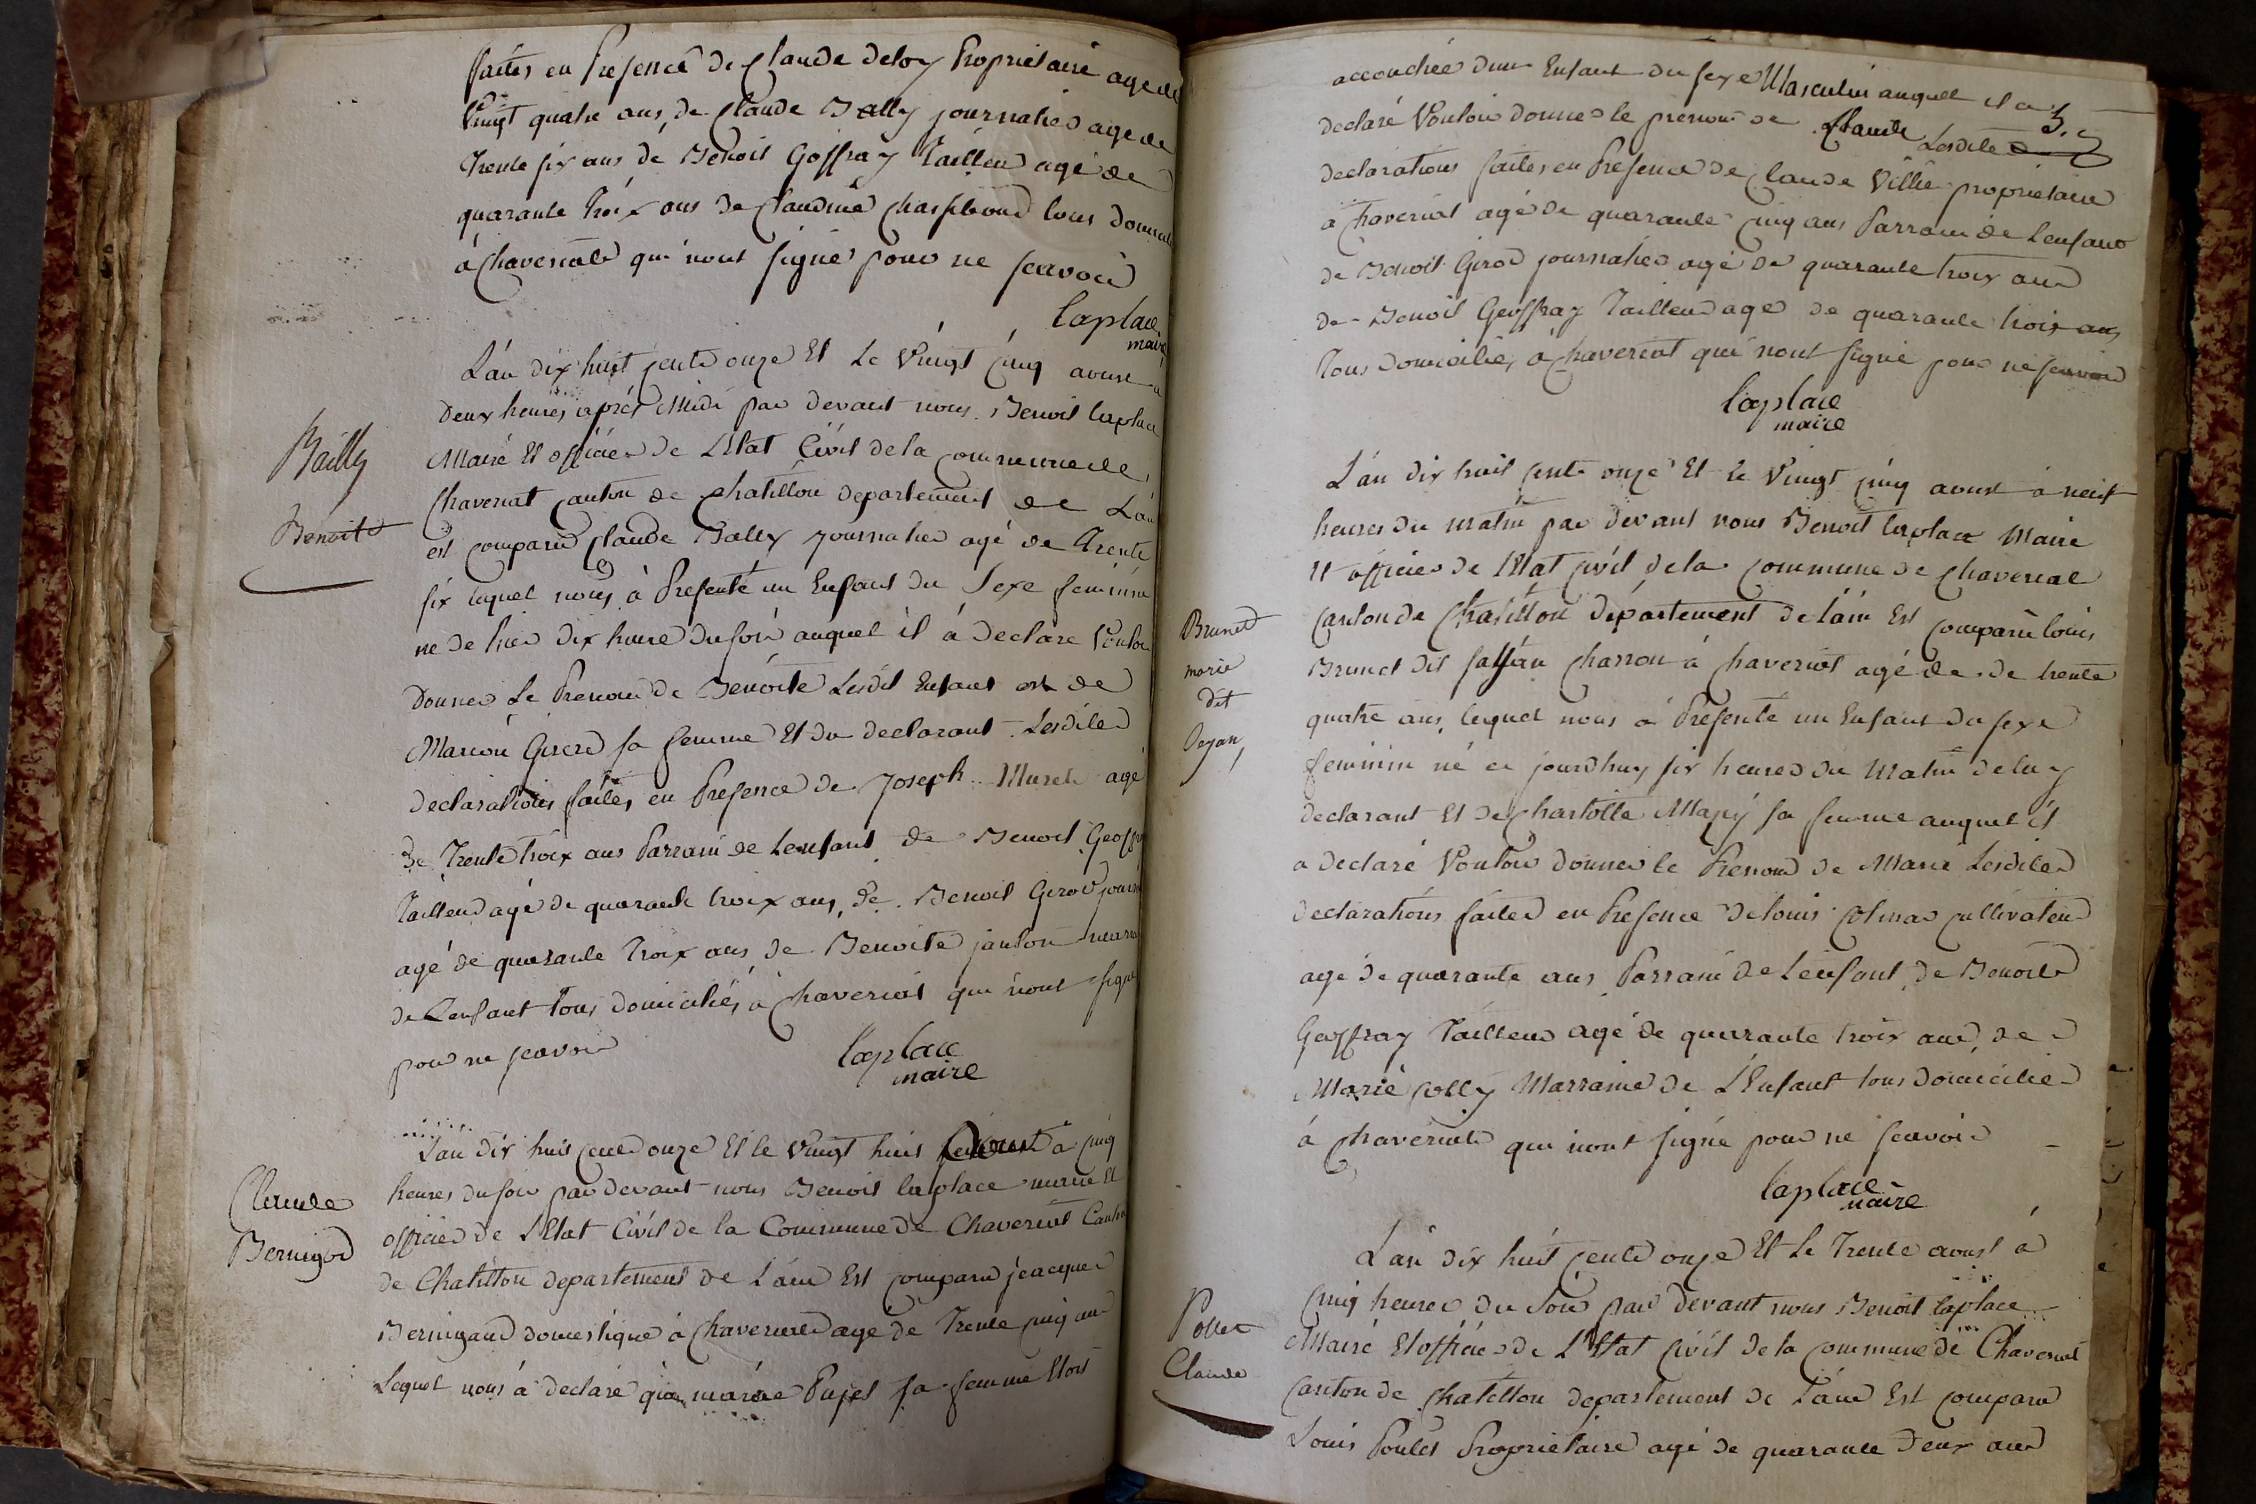 faites en presence de Claude deloy Propriétaire agé de
Vingt quatre ans, de Claude Bally journalier agé de
Trente six ans de Benoit Goffray Tailleur agé de
quarante trois ans de Claudine tous domicil
à Chaveriat qui n'ont signé pour ne scavoir
laplace
maire
L'an dix huit cent onze Et Le Vingt Cinq aoust à
Deux heures après Midi par devant nous Benoit laplace
Maire Et officier de L'Etat Civil de la commune de
Bailly
Chaveriat canton de Chatillon departement de L'ain
Benoite
est comparu Claude Bally journalier agé de Trente
six lequel nous à Presenté un Enfant du Sexe feminin
né de hier dix heure du soir auquel il à declare Vouloir
Donner Le Prenom de Benoite Lesdit Enfant est de
Marion Girerd sa femme Et du declarant Lesdites
declarations faites en Presence de Joseph Muset agé
de Trente trois ans Parrain de Lenfant de Benoit Geoffray
Tailleur agé de quarante trois ans, de Benoit Girod journ
agé de quarante Trois ans de Benoite janton mar
de Lenfant tous domiciliés à Chaveriat qui n'ont signé
pour ne scavoir
laplace
maire
L'an dix huit cent onze Et le Vingt huit aoust à cinq
Claude
heures du soir par devant nous Benoit laplace maire Et
officier de L'Etat Civil de la Commune de Chaveriat Canton
Bernigod
de Chatillon departement de L'ain Est comparu jeacques
Bernigaud domestique à Chaveriat agé de Trente cinq ans
Lequel nous à declaré que marie Pujet sa femme Etoit
accouchée d'un Enfant du sexe Masculin auquel il a
3.
declaré Vouloir donner le prenom de Claude Lesdites
declarations faites en Presence de Claude Villie propriétaire
à Chaveriat agé de quarante Cinq ans Parrain de Lenfant
de Benoit Girod journalier agé de quarante trois ans
de Benoit Geoffray Tailleur agé de quarante trois ans
Tous domiciliés à Chaveriat qui n'ont signé pour ne scavoir
laplace
maire
L'an dix huit cent onze Et le Vingt cinq aoust à neuf
heures du matin par devant nous Benoit laplace Maire
Et officier de l'Etat civil de la commune de Chaveriat
Brunet
canton de Chatillon département de l'ain Est comparu louis
marie
Brunet dit Charron à Chaveriat agé de de trente
dit
quatre ans, lequel nous à Presenté un Enfant du sexe
feminin né ce jourdhuy six heures du Matin de luy
declarant Et de Charlotte sa femme auquel il
a declaré Vouloir donner le Prenom de Marie Lesdites
declarations faites en Presence de louis Colinas cultivateur
agé de quarante ans Parrain de Lenfant, de Benoit
Geoffray Tailleur agé de quarante trois ans, de
Marie Colly Marraine de L'Enfant tous domicilié
à Chaveriat qui n'ont signé pour ne scavoir
laplace
maire
L'an dix huit cent onze Et Le Trente aoust à
cinq heures du Soir par devant nous Benoit laplace
Pollet
Maire Et officier de L'Etat Civil de la commune de Chaveriat
Claude
canton de Chatillon departement de L'ain Est comparu
Louis Poulet Propriétaire agé de quarante Deux ans